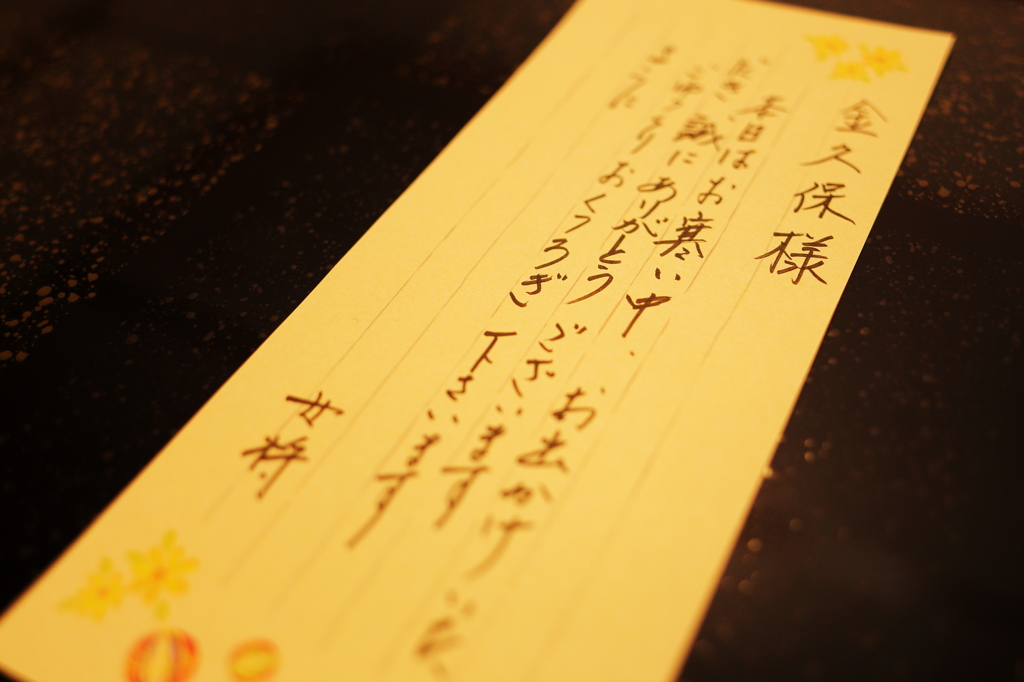 金久保様
本日はお寒い中、お出かけいた
だき誠にありがとうございます
ごゆっくりおくつろぎ下さいます
ように
女将